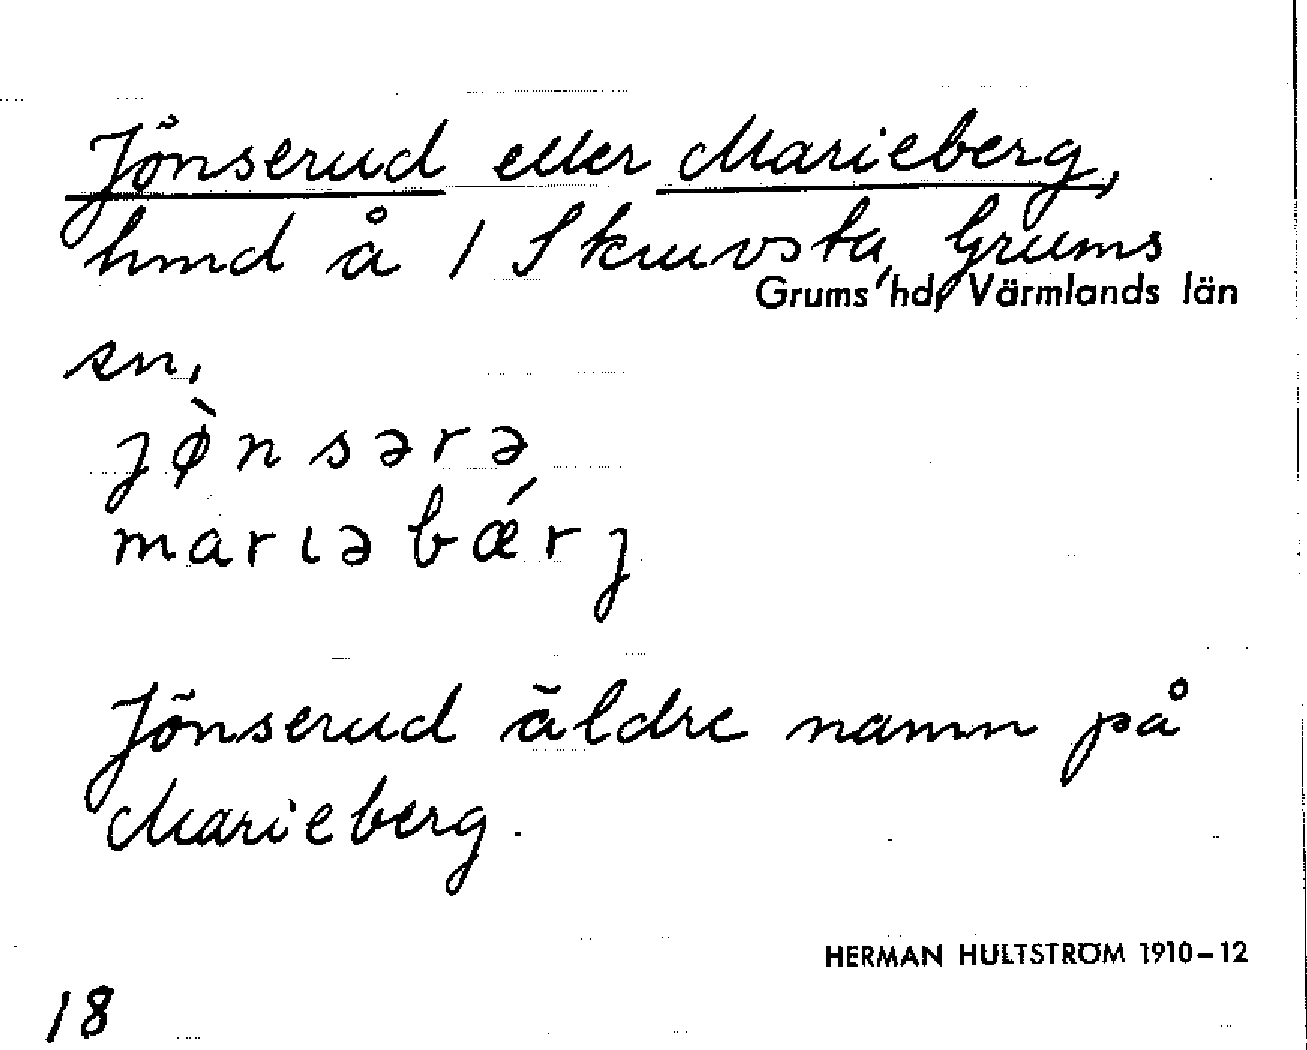 Jönserud eller Marieberg,
hmd å 1 Skruvsta, Grums
Grums hd, Värmlands län
sn,
jø̀nsərə
marıəbǽrj
Jönserud äldre namn på
Marieberg.
HERMAN HULTSTRÖM 1910-12
18